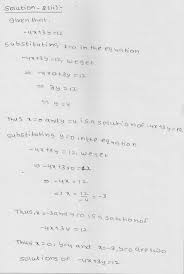 Solution-2(ii):-
Given that
-4x+3y=12
Substituting x=0 in the equation
-4x+3y=12, we get
⇒ -4x0+3y=12
⇒ 3y=12
⇒ y=4
Thus x=0 and y=4 is a solution of -4x+3y=12
substituting y=0 in the equation
-4x+3y=12, we get
⇒ -4x+3x0=12
⇒ -4x=12
x=12/-4=-3
Thus, x=-3 and y=0 is a solution of
-4x+3y=12
Thus x=0, y=4 and x=-3, y=0 are two
solutions of -4x+3y=12